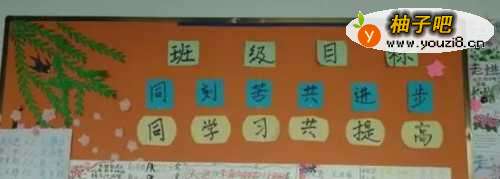 柚子吧
www.youzi8.cn
班级目标
同刻苦共进步
同学习共提高